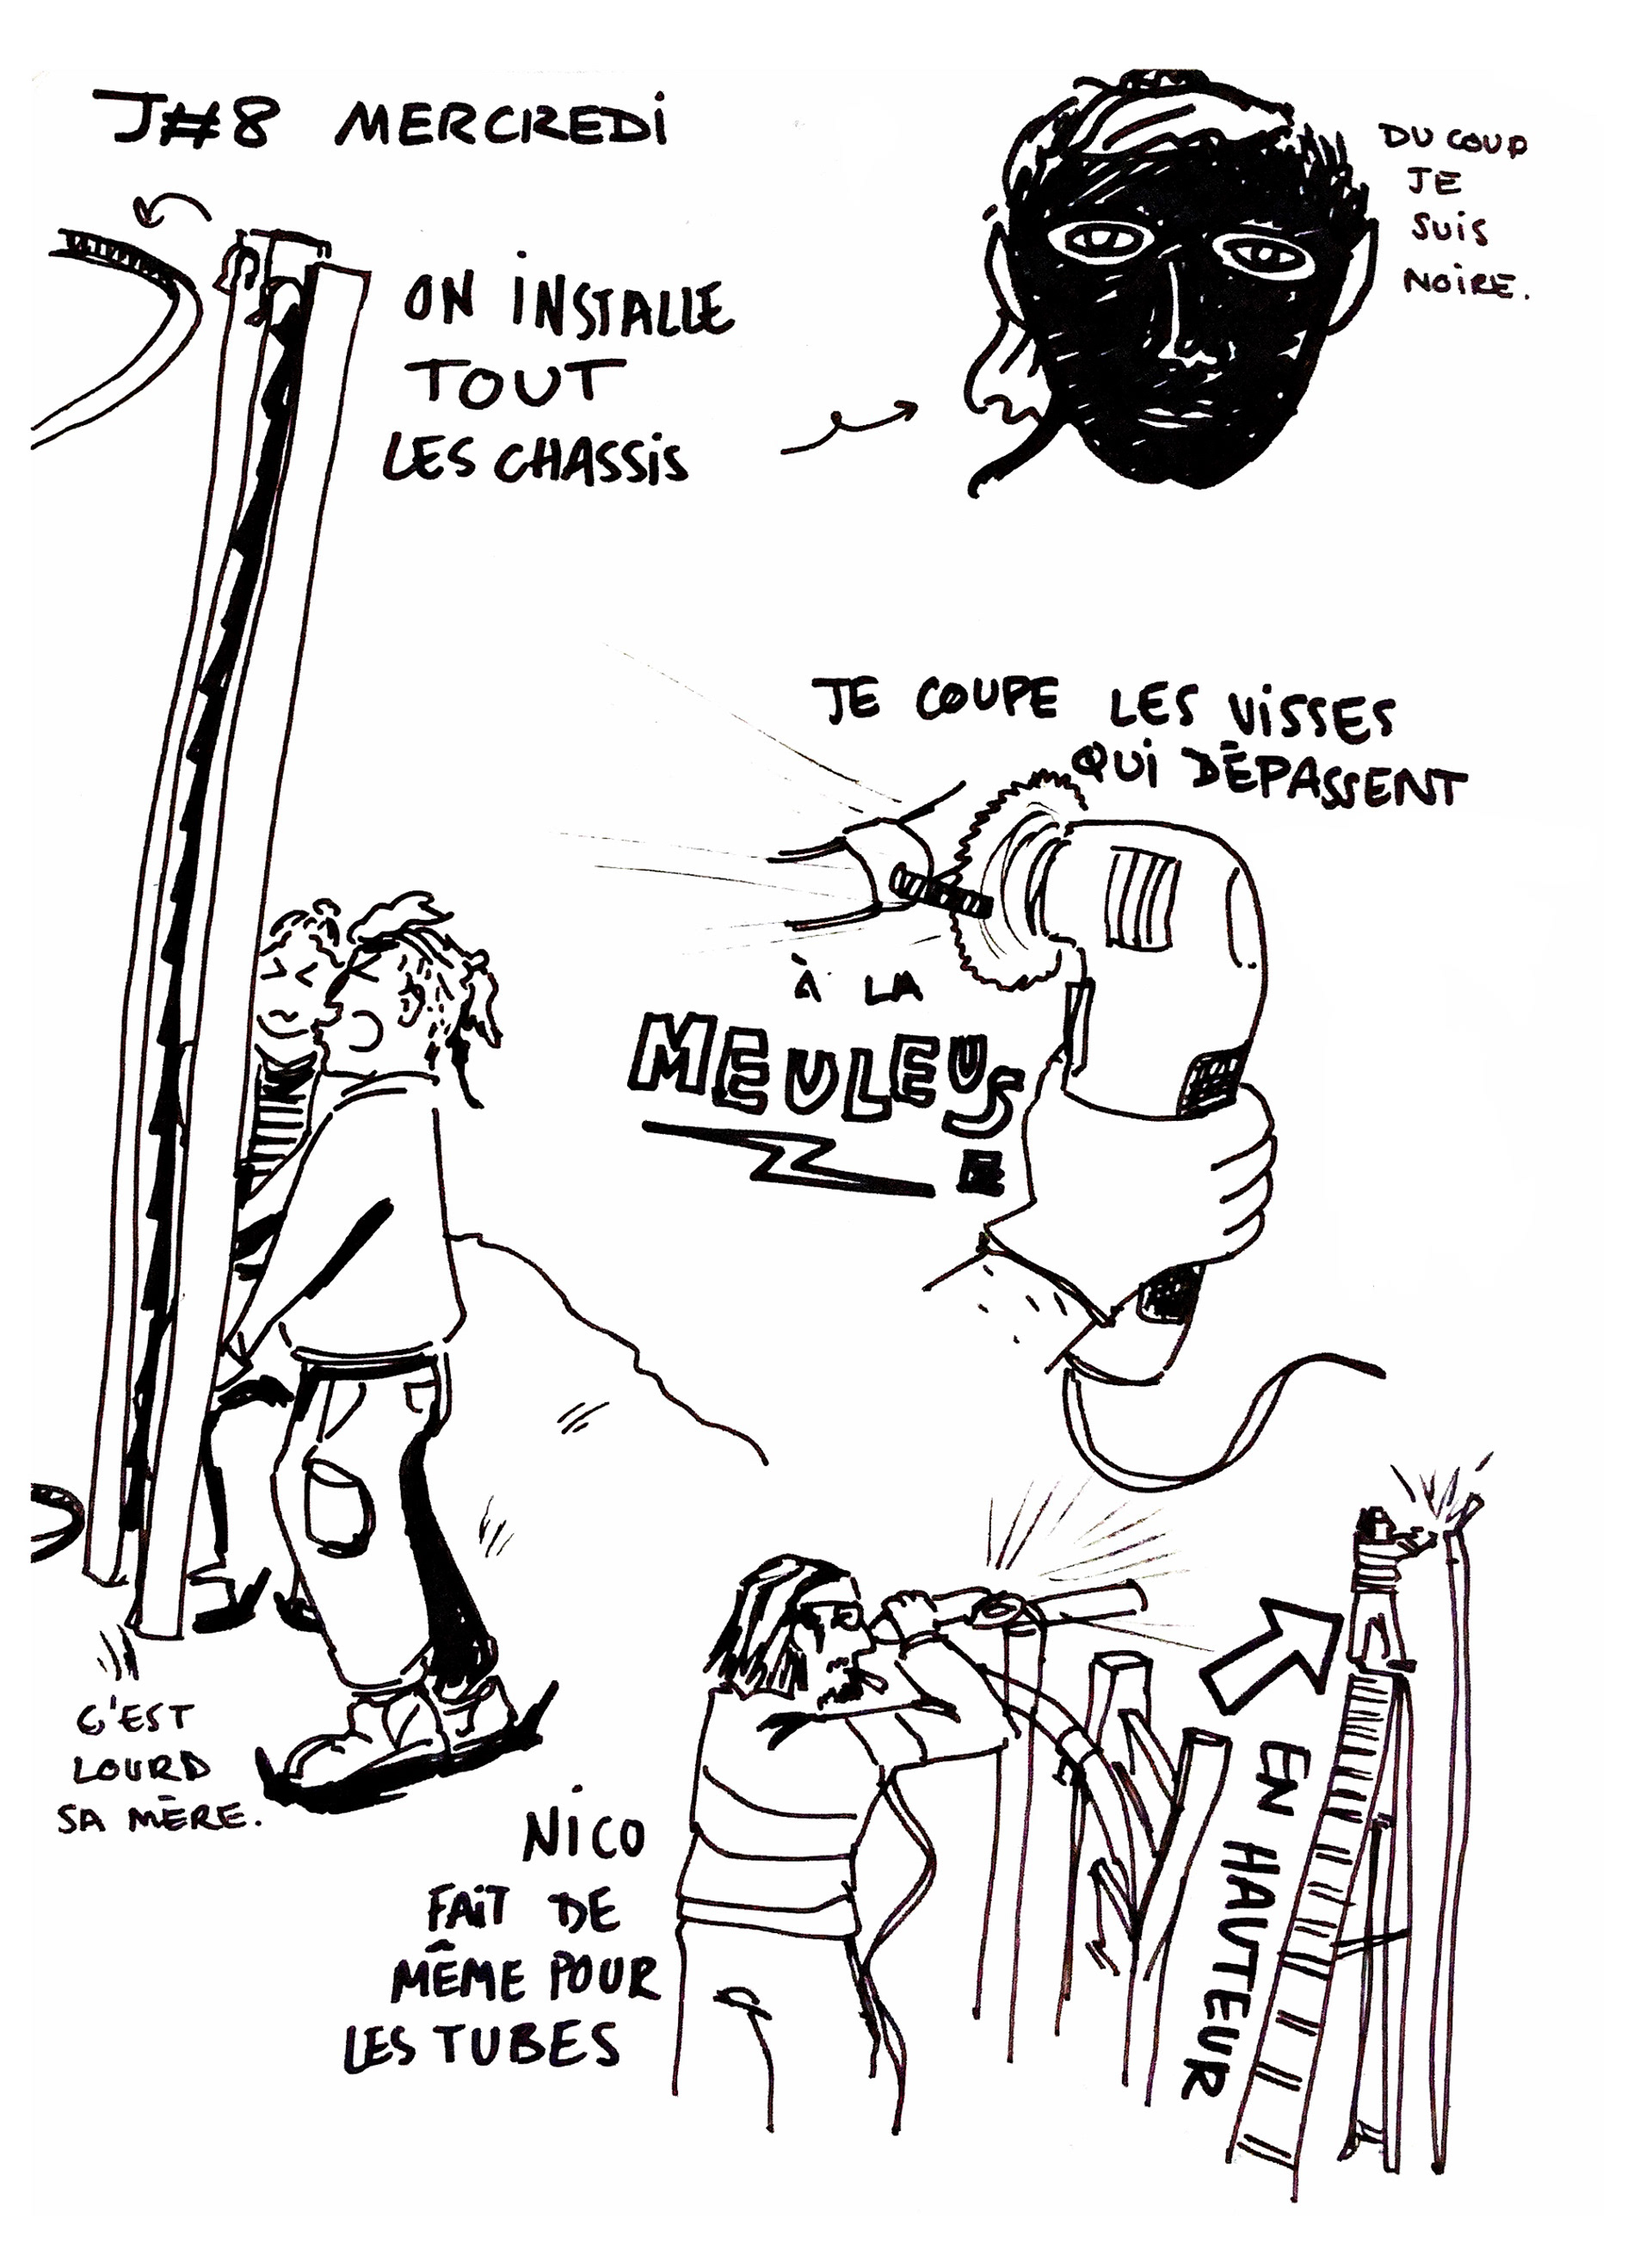 J#8 MERCREDI
ON INSTALLE
TOUT
LES CHASSIS
DU COUP
JE
SUIS
NOIRE.
JE COUPE LES VISSES
QUI DÉPASSENT
À LA
MEULEUSE
C'EST
LOURD
SA MÈRE.
NICO
FAIT DE
MÊME POUR
LES TUBES
EN HAUTEUR